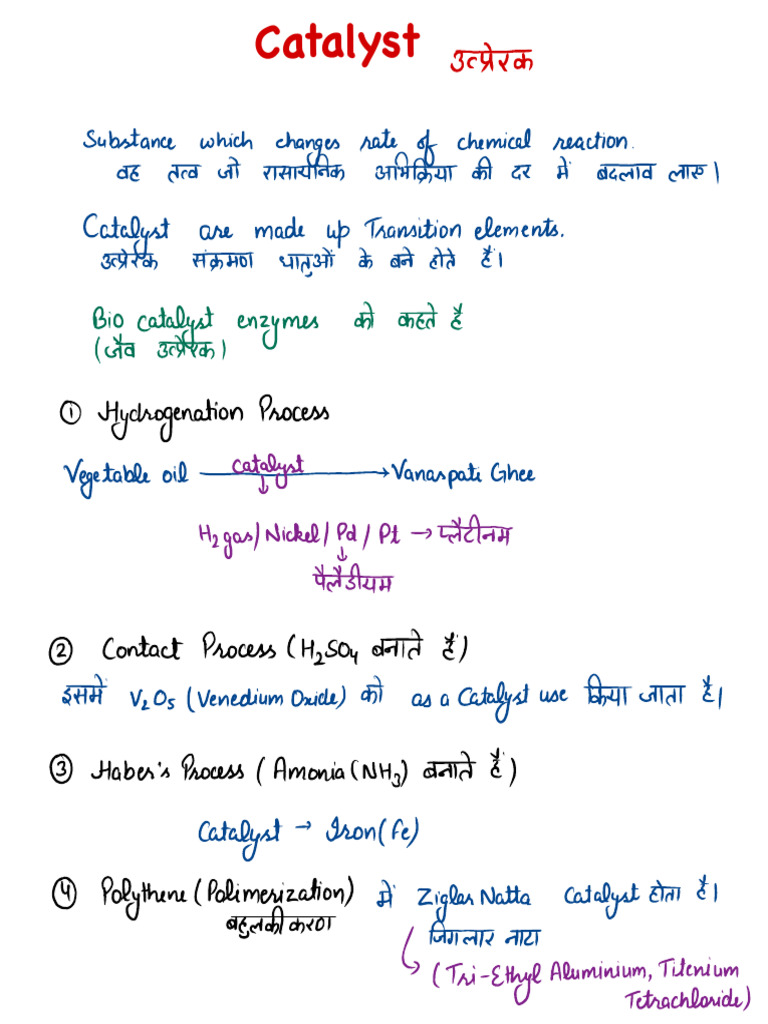 Catalyst उत्प्रेरक
Substance which changes rate of chemical reaction.
वह तत्व जो रासायनिक अभिक्रिया की दर में बदलाव लाए।
Catalyst are made up Transition elements.
उत्प्रेरक संक्रमण धातुओं के बने होते हैं।
Bio catalyst enzymes को कहते है
(जैव उत्प्रेरक)
① Hydrogenation Process
Vegetable oil catalyst → Vanaspati Ghee
↓
H₂gas/Nickel/Pd/Pt → प्लैटीनम
↓
पैलैडीयम
② Contact Process (H₂SO₄ बनाते हैं)
इसमें V₂O₅ (Venedium Oxide) को as a Catalyst use किया जाता है।
③ Haber's Process (Amonia (NH₃) बनाते हैं)
Catalyst → Iron(Fe)
④ Polythene (Polimerization) में Ziglar Natta Catalyst होता है।
बहुलकी करण जिगलार नाटा
(Tri-Ethyl Aluminium, Titenium
Tetrachloride)